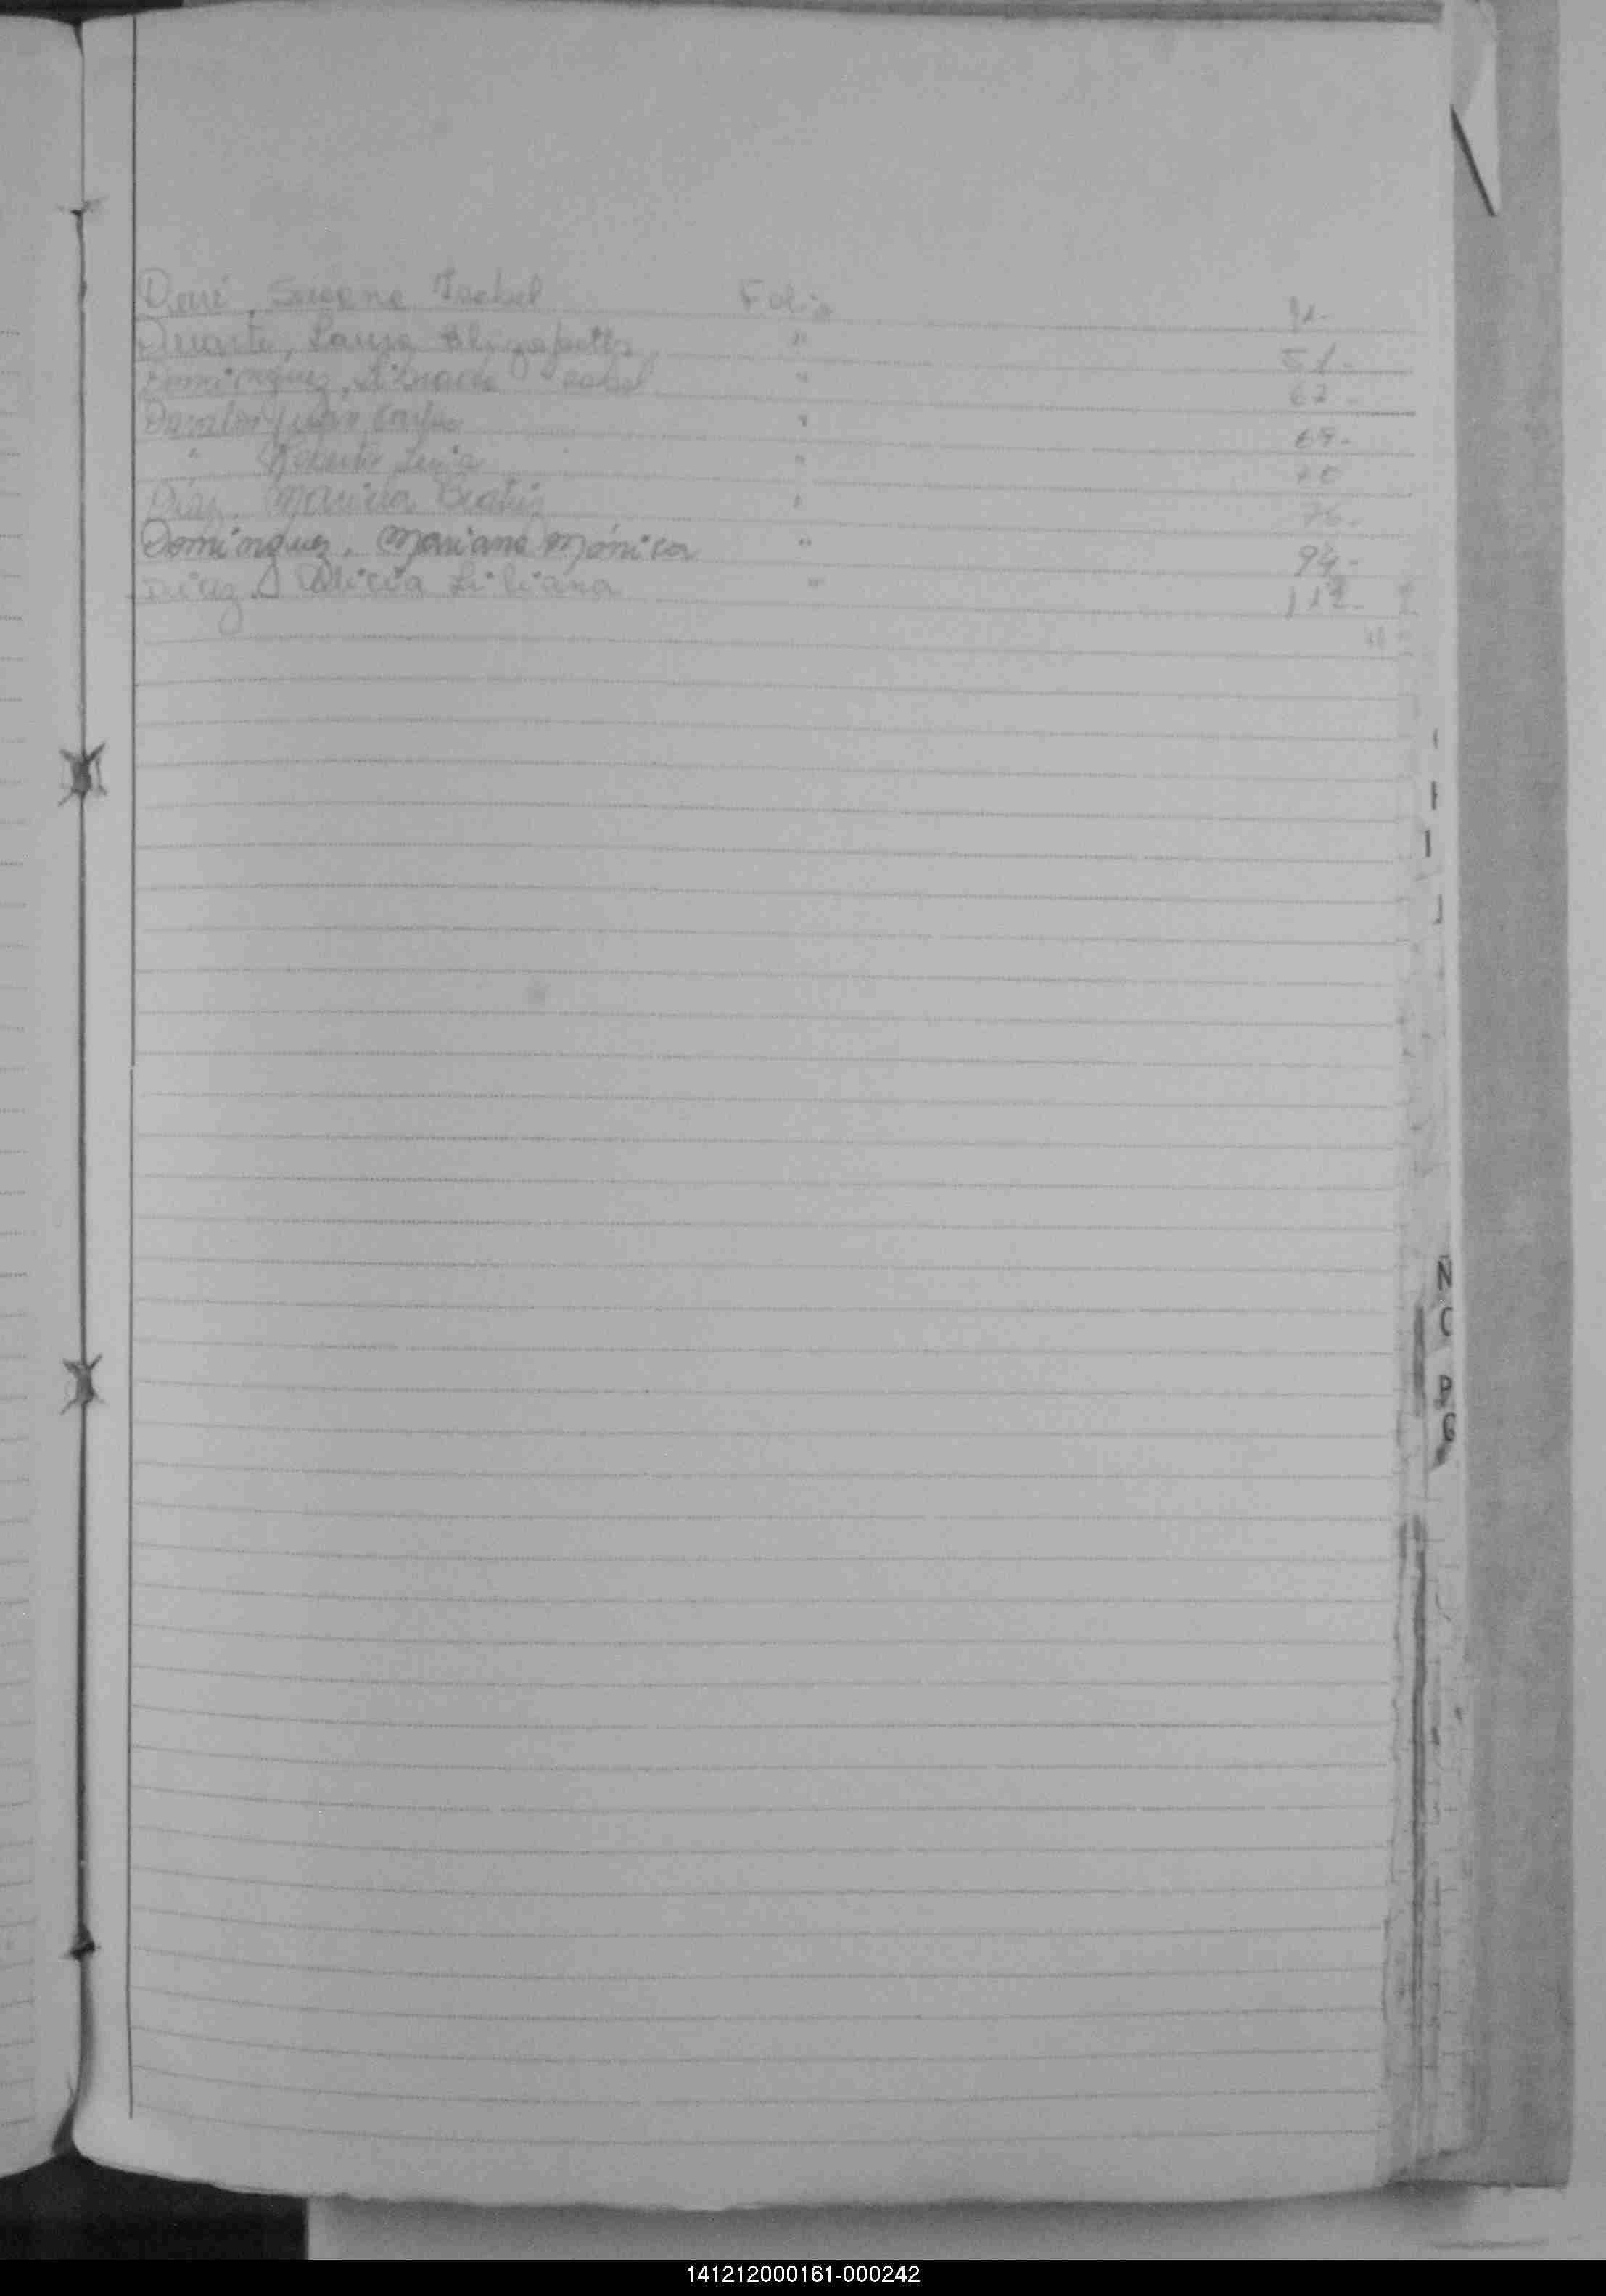 Susana Isabel Folio
Duarte, Laura Elizabeth " 51-
Dominguez, Isabel " 62-
Juan Carlos " 69-
" Roberto " 70
Díaz, Mariela Beatriz " 76-
Dominguez, Mariana Mónica " 94-
Diaz Alicia Liliana " 112-
N
C
P
G
141212000161-000242